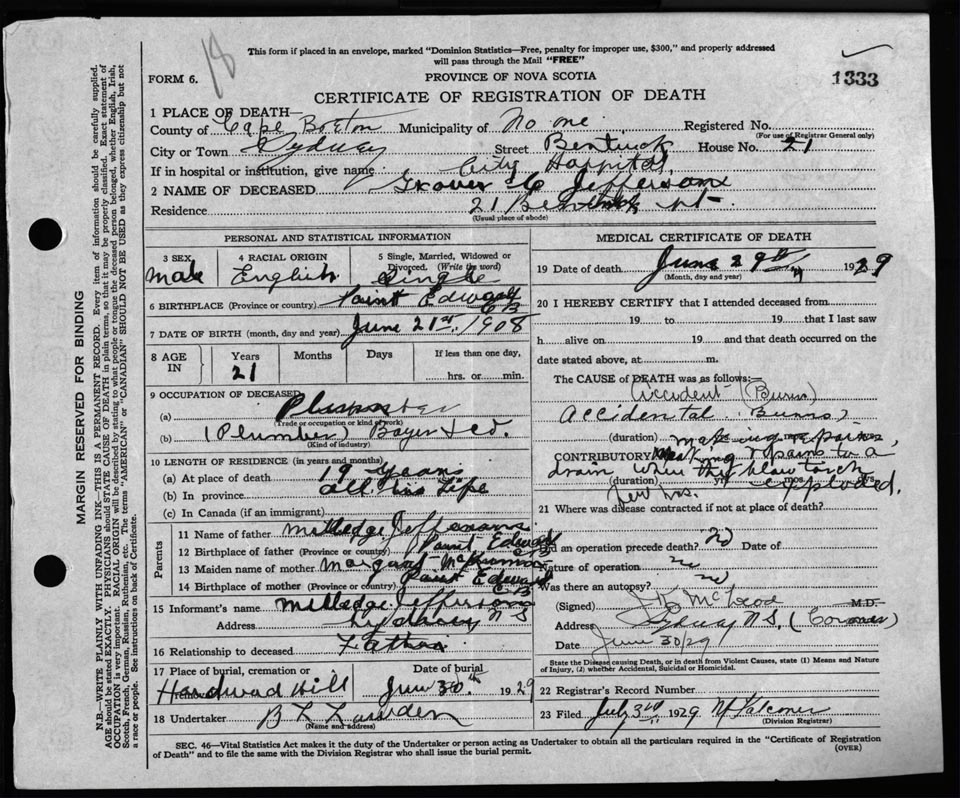 18
This form if placed in an envelope, marked "Dominion Statistics—Free, penalty for improper use, $300," and properly addressed
will pass through the Mail "FREE"
FORM 6.
PROVINCE OF NOVA SCOTIA
1333
CERTIFICATE OF REGISTRATION OF DEATH
1 PLACE OF DEATH—
County of Cape Breton Municipality of No one Registered No.
(For use of Registrar General only)
City or Town Sydney Street Bentinck House No. 21
If in hospital or institution, give name City Hospital
2 NAME OF DECEASED Grover C Jefferson
Residence 21 Bentinck st.
(Usual place of abode)
PERSONAL AND STATISTICAL INFORMATION
3 SEX Male 4 RACIAL ORIGIN English 5 Single, Married, Widowed or Divorced. (Write the word) Single
6 BIRTHPLACE (Province or country) Point Edward CB
7 DATE OF BIRTH (month, day and year) June 21st, 1908
8 AGE IN Years 21 Months Days If less than one day, hrs. or min.
9 OCCUPATION OF DECEASED
(a) Plumber
(Trade or occupation or kind of work)
(b) (Plumber)
(Kind of industry)
10 LENGTH OF RESIDENCE (in years and months)
(a) At place of death 19 years
(b) In province all his life
(c) In Canada (if an immigrant)
Parents
11 Name of father Milledge Jefferson
12 Birthplace of father (Province or country) Point Edward CB
13 Maiden name of mother Margaret McKinnon
14 Birthplace of mother (Province or country) Point Edward C.B
15 Informant's name Milledge Jefferson
Address Sydney N S
16 Relationship to deceased Father
17 Place of burial, cremation or Hardwood Hill Date of burial June 30th 1929
18 Undertaker
(Name and address)
MEDICAL CERTIFICATE OF DEATH
19 Date of death June 29th 1929
(Month, day and year)
20 I HEREBY CERTIFY that I attended deceased from
19 to 19 that I last saw
h alive on 19 and that death occurred on the
date stated above, at m.
The CAUSE of DEATH was as follows:—
Accident (Burns)
Accidental Burns)
(duration) making repairs,
CONTRIBUTORY Making repairs to a
drain when the blow torch
(duration) yrs. exploded.
few hrs.
21 Where was disease contracted if not at place of death?
Did an operation precede death? no Date of
Nature of operation no
Was there an autopsy? no
(Signed) McLeod M.D.
Address Sydney N.S. (Coroner)
Date June 30/29
State the Disease causing Death, or in death from Violent Causes, state (1) Means and Nature
of Injury, (2) whether Accidental, Suicidal or Homicidal.
22 Registrar's Record Number
23 Filed July 3rd 1929 N Falconer
(Division Registrar)
SEC. 46—Vital Statistics Act makes it the duty of the Undertaker or person acting as Undertaker to obtain all the particulars required in the "Certificate of Registration
of Death" and to file the same with the Division Registrar who shall issue the burial permit.
(OVER)
MARGIN RESERVED FOR BINDING
N.B.—WRITE PLAINLY WITH UNFADING INK—THIS IS A PERMANENT RECORD. Every item of information should be carefully supplied.
AGE should be stated EXACTLY. PHYSICIANS should STATE CAUSE OF DEATH in plain terms, so that it may be properly classified. Exact statement of
OCCUPATION is very important. RACIAL ORIGIN will be described by stating to what people or tongue the deceased person belonged, whether English, Irish,
Scotch, French, German, Russian, Ruthenian, etc. The terms "AMERICAN" or "CANADIAN" SHOULD NOT BE USED as they express citizenship but not
a race or people. See instructions on back of Certificate.